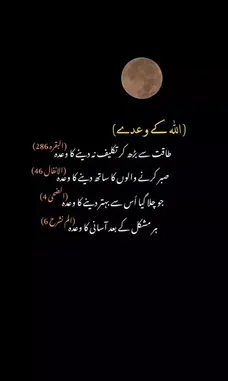 (اللہ کے وعدے)
طاقت سے بڑھ کر تکلیف نہ دینے کا وعدہ (البقرہ 286)
صبر کرنے والوں کا ساتھ دینے کا وعدہ (الانفال 46)
جو چلا گیا اُس سے بہتر دینے کا وعدہ (الضحی 4)
ہر مشکل کے بعد آسانی کا وعدہ (الم نشرح 6)